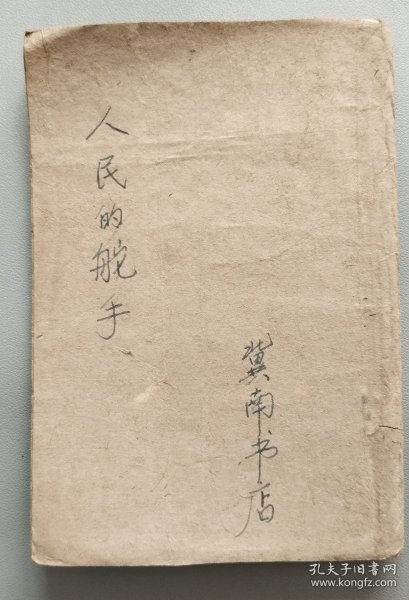 人民的舵手
冀南书店
孔夫子旧书网
www.kongfz.com